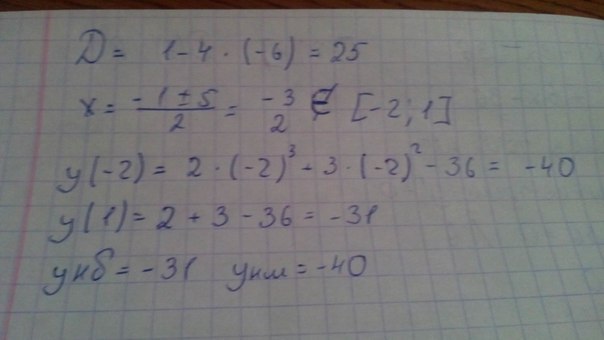 D = 1 - 4 · (-6) = 25
x = (-1 ± 5)/2 = -3 2 ∉ [-2; 1]
y(-2) = 2 · (-2)³ + 3 · (-2)² - 36 = -40
y(1) = 2 + 3 - 36 = -31
yнб = -31 yнм = -40